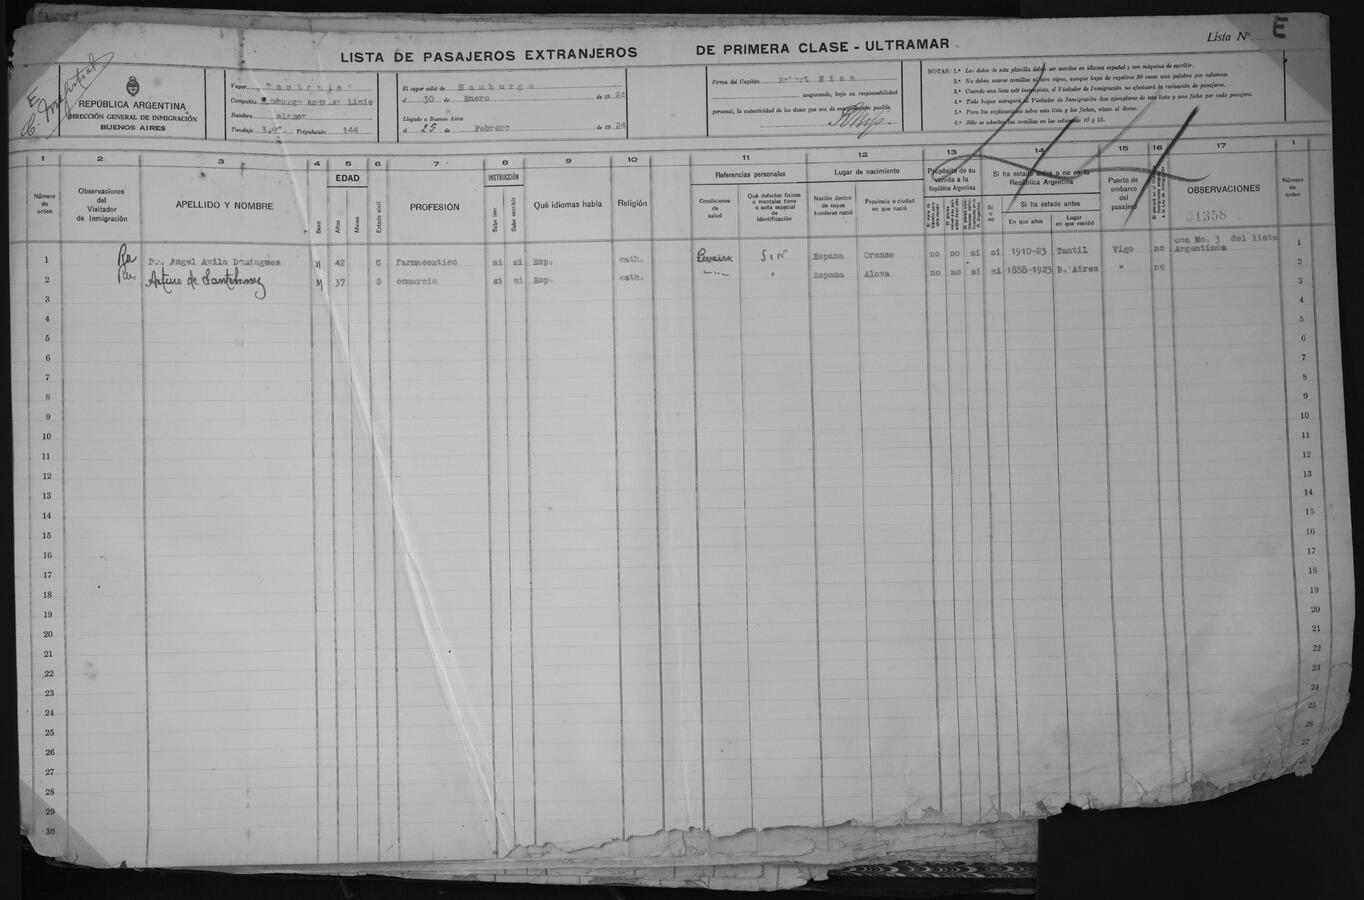 LISTA DE PASAJEROS EXTRANJEROS DE PRIMERA CLASE - ULTRAMAR
Lista Nº E
REPÚBLICA ARGENTINA
DIRECCIÓN GENERAL DE INMIGRACIÓN
BUENOS AIRES
Vapor
Compañía Linie
Bandera
Tonelaje Tripulación 144
El vapor salió de Hamburgo
el 30 de Enero de 1924
Llegado a Buenos Aires
el 25 de Febrero de 1924
Firma del Capitán Robert
asegurando, bajo su responsabilidad
personal, la autenticidad de los datos que son de comprobación posible.
NOTAS: 1.ª Los datos de esta planilla deben ser escritos en idioma español y con máquina de escribir.
2.ª No deben usarse comillas ni otro signo, aunque haya de repetirse 20 veces una palabra por columna.
3.ª Cuando una lista esté incompleta, el Visitador de Inmigración no efectuará la revisación de pasajeros.
4.ª Todo buque entregará al Visitador de Inmigración dos ejemplares de esta lista y una ficha por cada pasajero.
5.ª Para las explicaciones sobre esta lista y las fichas, véase al dorso.
6.ª Sólo se admiten comillas en las columnas 10 y 15.
1 2 3 4 5 6 7 8 9 10 11 12 13 14 15 16 17 1
Número de orden
Observaciones del Visitador de Inmigración
APELLIDO Y NOMBRE
Sexo
EDAD
Años
Meses
Estado civil
PROFESIÓN
INSTRUCCIÓN
Sabe leer
Sabe escribir
Qué idiomas habla
Religión
Referencias personales
Condiciones de salud
Qué defectos físicos o mentales tiene o seña especial de identificación
Lugar de nacimiento
Nación dentro de cuyas fronteras nació
Provincia o ciudad en que nació
Propósito de su venida a la República Argentina
Si ha estado antes o no en la República Argentina
Si o no
Si ha estado antes
En que años
Lugar en que residió
Puerto de embarco del pasajero
OBSERVACIONES
Número de orden
31358
1 Dr. Angel Avila Dominguez M 42 C farmaceutico si si Esp. cath. SIN Espana Orense no no si si 1910-23 Tantil Vigo no con No. 3 del lista Argentinos 1
2 Arturo de Santibanez M 37 S comercio si si Esp. cath. " Espana Alava no no si si 1888-1923 B.'Aires " no 2
3 3
4 4
5 5
6 6
7 7
8 8
9 9
10 10
11 11
12 12
13 13
14 14
15 15
16 16
17 17
18 18
19 19
20 20
21 21
22 22
23 23
24 24
25 25
26 26
27 27
28
29
30